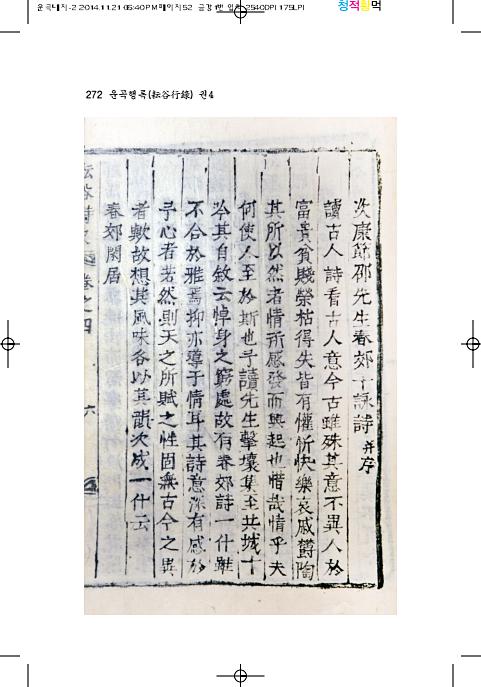 272 운곡행록(耘谷行錄) 권4
次康節邵先生春郊十詠詩 并序
讀古人詩看古人意今古雖殊其意不異人於
富貴貧賤榮枯得失皆有懽忻快樂哀戚鬱陶
其所以然者情所感發而興起也惜哉情乎夫
何使人至於斯也予讀先生擊壤集至共城十
吟其自敘云悼身之窮處故有春郊詩一什雖
不合於雅焉抑亦導于情耳其詩意深有感於
予心者若然則天之所賦之性固無古今之異
者歟故想其風味各以其韻次成一什云
春郊閑居
耘谷詩史 卷之四 六
청적황먹